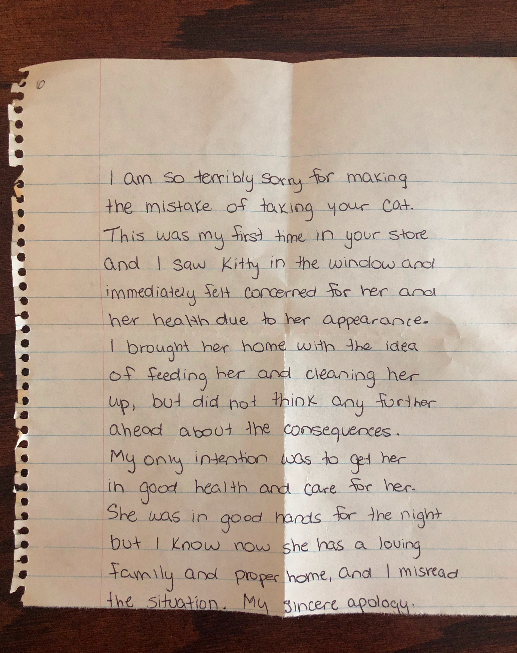 I am so terribly sorry for making
the mistake of taking your cat.
This was my first time in your store
and I saw Kitty in the window and
immediately felt concerned for her and
her health due to her appearance.
I brought her home with the idea
of feeding her and cleaning her
up, but did not think any further
ahead about the consequences.
My only intention was to get her
in good health and care for her.
She was in good hands for the night
but I know now she has a loving
family and proper home, and I misread
the situation. My sincere apology.